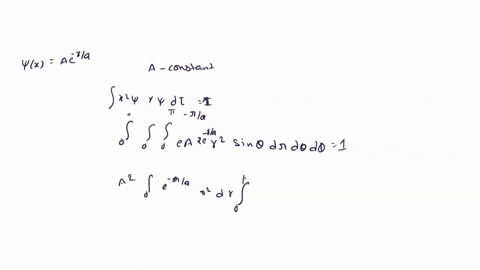 ψ(x) = Ae^{-r/a}
A - constant
∫ x² ψ r ψ dτ = 1
∫₀ ∫₀ ∫₀^π e A² e^{-r/a} r² sin θ dr dθ dθ = 1
A² ∫₀ e^{-r/a} r² dr ∫₀